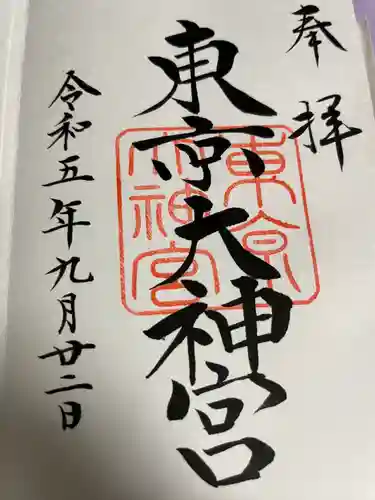 奉拝
東京大神宮
東京大神宮
令和五年九月廿二日